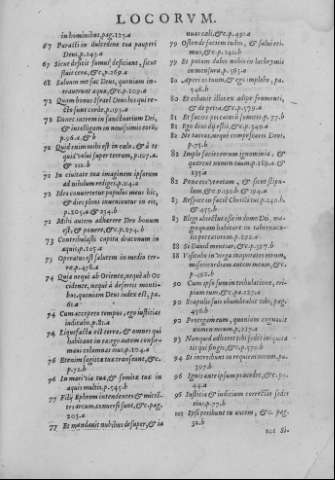 LOCORVM.
in hominibus, pag. 125.a
67 Parasti in dulcedine tua pauperi
Deus, p.243.a
67 Sicut deficit fumus deficiant, sicut
fluit cera, &c.p.269.a
68 Saluum me fac Deus, quoniam in-
trauerunt aquæ, &c.p.209.a
72 Quàm bonus Israel Deus his qui re-
cto sunt corde, p.193.a
72 Donec intrem in sanctuarium Dei,
& intelligam in nouissimis eorum
p.56.a. & b
72 Quid enim mihi est in cœlo, & à te
quid volui super terram, p.107.a.
& 221.b
72 In ciuitate tua imaginem ipsorum
ad nihilum rediges, p.24.a
72 Ideo conuertetur populus meus hic,
& dies pleni inuenientur in eis,
p.205.a & 234.b
72 Mihi autem adhærere Deo bonum
est, & ponere, &c.p.274.b
73 Contribulasti capita draconum in
aquis, p.225.a
73 Operatus est salutem in medio ter-
ræ, p.456.a
74 Quia neque ab Oriente, neque ab Oc
cidente, neque à desertis monti-
bus, quoniam Deus iudex est, pa.
61.a
74 Cum accepero tempus, ego iustitias
iudicabo, p.81.a
74 Liquefacta est terra, & omnes qui
habitant in ea, ego autem confir-
maui columnas eius, p.104.a
76 Etenim sagittæ tuæ transeunt, &c.
p.72.b
76 In mari via tua, & semitæ tuæ in
aquis multis, p.545.b
77 Filij Ephrem intendentes & mitten-
tes arcum, conuersi sunt, &c.pag.
205.a
77 Et mandauit nubibus desuper, & ia
nuas cœli, &c.p.491.a
79 Ostende faciem tuam, & salui eri-
mus, &c.p.242.b
79 Et potum dabis nobis in lachrymis
in mensura, p.565.a
80 Aperi os tuum, & ego implebo, pa.
548.b
80 Et cibauit illos ex adipe frumenti,
& de petra, &c.p.575.a
81 Et facies peccatorū sumitis p.77.b
81 Ego dixi dij estis, &c.p.541.a
82 Ne taceas, neque compescaris Deus,
p.57.b
82 Imple facies eorum ignominia, &
quærent nomen tuum, p.184.a &
235.a
82 Pones eos vt rotam, & sicut stipu-
lam, &c.p.130.b & 194.a
83 Respice in faciē Christi tui, p.240.b.
& 475.b
83 Elegi abiectus esse in domo Dei, ma-
gis quàm habitare in tabernacu-
lis peccatorum, p.292.a
88 Si Dauid mentiar, &c.p.327.b
88 Visitabo in virga iniquitates eorum,
misericordiam autem meam, &c.
p.462.b
90 Cum ipso sum in tribulatione, eri-
piam eum, &c.pa.127.a
90 Scapulis suis obumbrabit tibi, pag.
450.b
90 Protegam eum, quoniam cognouit
nomen meum, p.217.a
93 Nunquid adhæret tibi sedes iniquita
tis qui fingis, &c.p.570.b
94 Et introibunt in requiem meam, pa.
397.b
96 Ignis ante ipsum præcedet, &c.p.
45.a
96 Iustitia & iudicium correctio sedis
eius, p.77.b
101 Ipsi peribunt tu autem, &c. pag.
32.b
ccc Si.